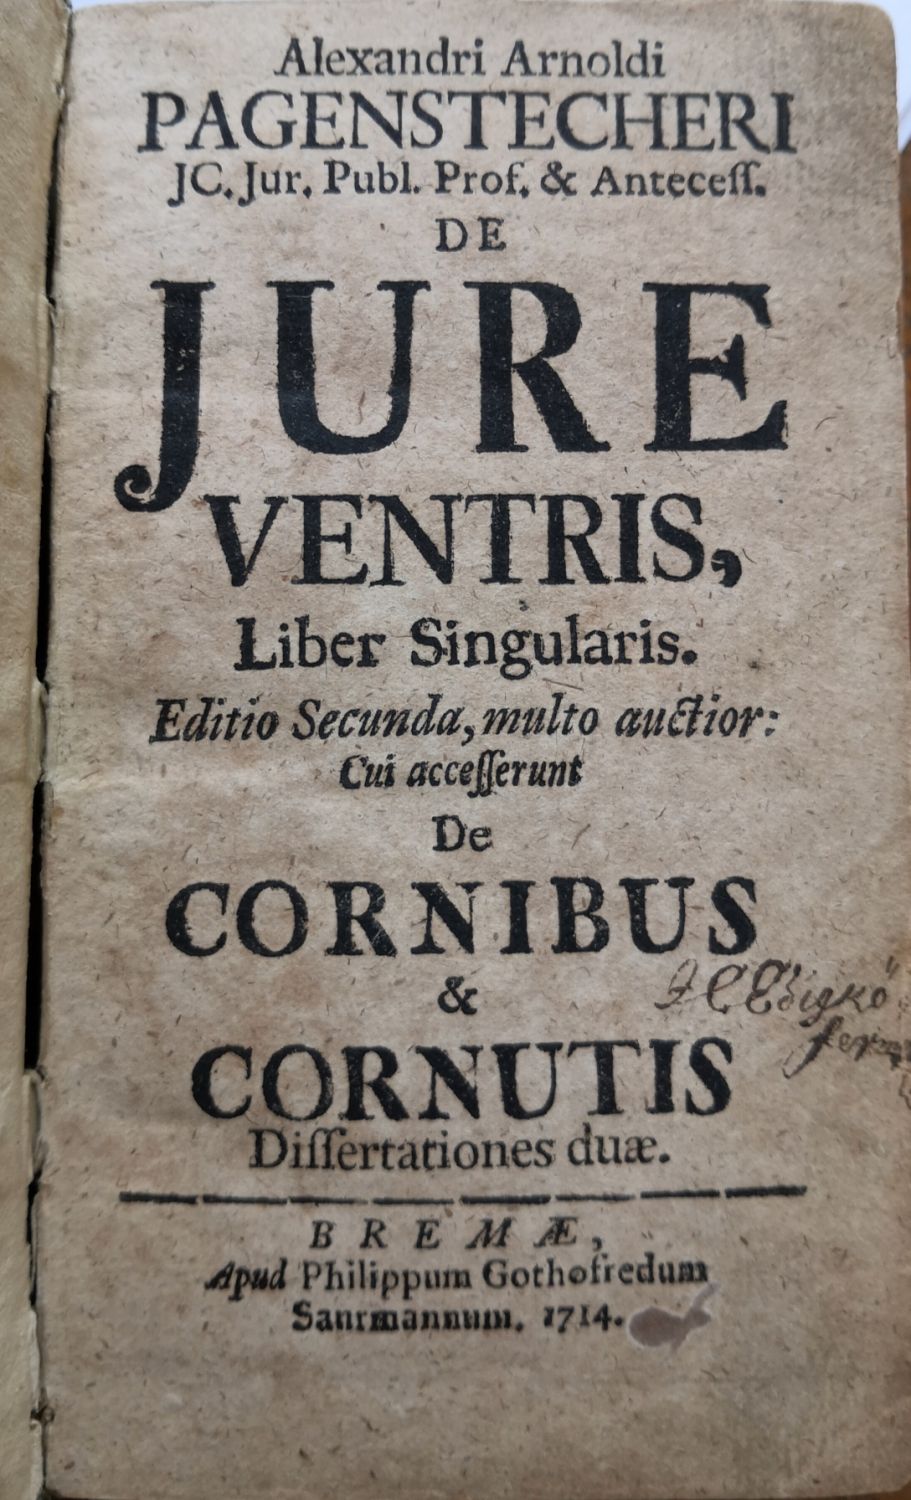 Alexandri Arnoldi
PAGENSTECHERI
JC. Jur. Publ. Prof. & Anteceſſ.
DE
JURE
VENTRIS,
Liber Singularis.
Editio Secunda, multo auctior:
Cui acceſſerunt
De
CORNIBUS
&
CORNUTIS
Diſſertationes duæ.
BREMÆ,
Apud Philippum Gothofredum
Saurmannum. 1714.